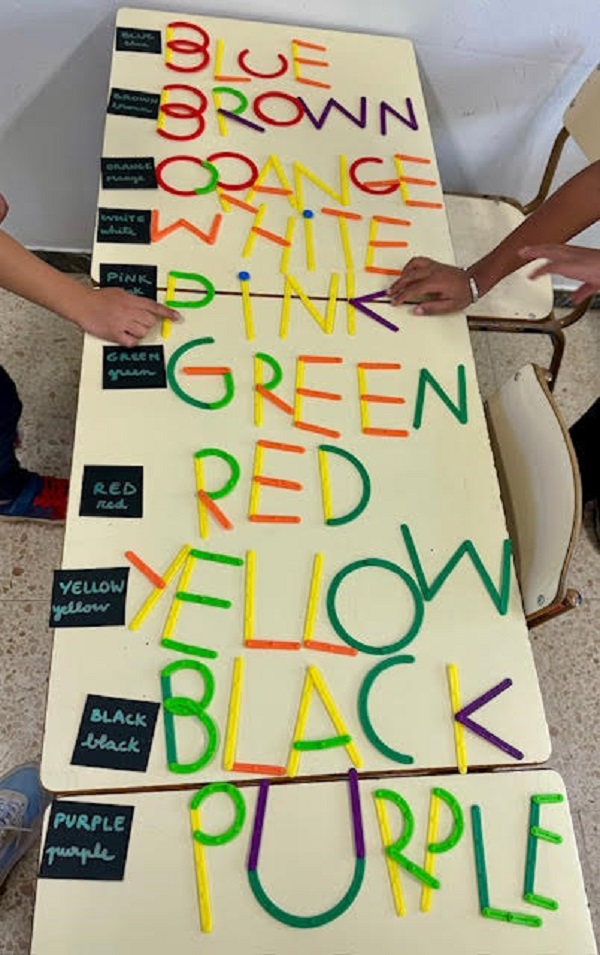 BLUE
blue
BLUE
BROWN
brown
BROWN
ORANGE
orange
ORANGE
WHiTE
white
WHiTE
PiNK
PiNK
GREEN
green
GREEN
RED
red
RED
YELLOW
yellow
YELLOW
BLACK
black
BLACK
PURPLE
purple
PURPLE